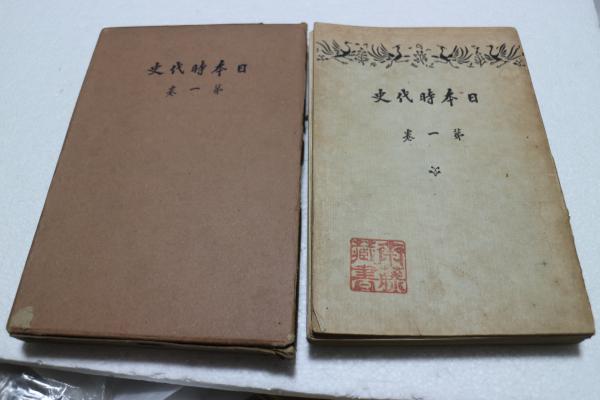 日本時代史
第一卷
日本時代史
第一卷
藏書